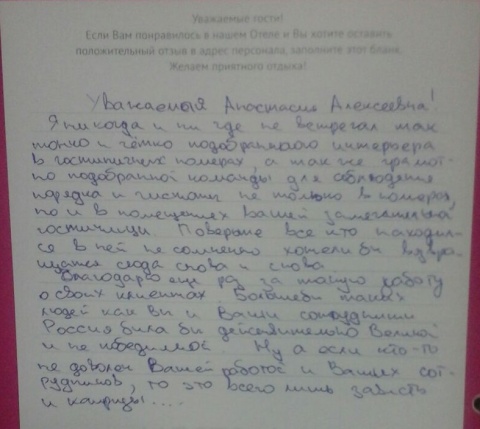 Уважаемые гости!
Если Вам понравилось в нашем Отеле и Вы хотите оставить
положительный отзыв в адрес персонала, заполните этот бланк.
Желаем приятного отдыха!
Уважаемая Анастасия Алексеевна!
Я никогда и ни где не встречал так
тонко и чётко подобранного интерьера
в гостиничных номерах, а так же грамот-
но подобранной команды для соблюдения
порядка и чистоты не только в номерах,
но и в помещениях вашей замечательной
гостиницы. Поверьте все кто находил-
ся в ней не сомненно хотели бы возвра-
щатся сюда снова и снова.
Благодарю еще раз за такую работу
о своих клиентах Больше бы таких
людей как вы и Ваши сотрудники
Россия была бы действительно Великой
и не победимой Ну а если кто-то
не доволен Вашей работой и Ваших сот-
рудников, то это всего лишь зависть
и капризы....